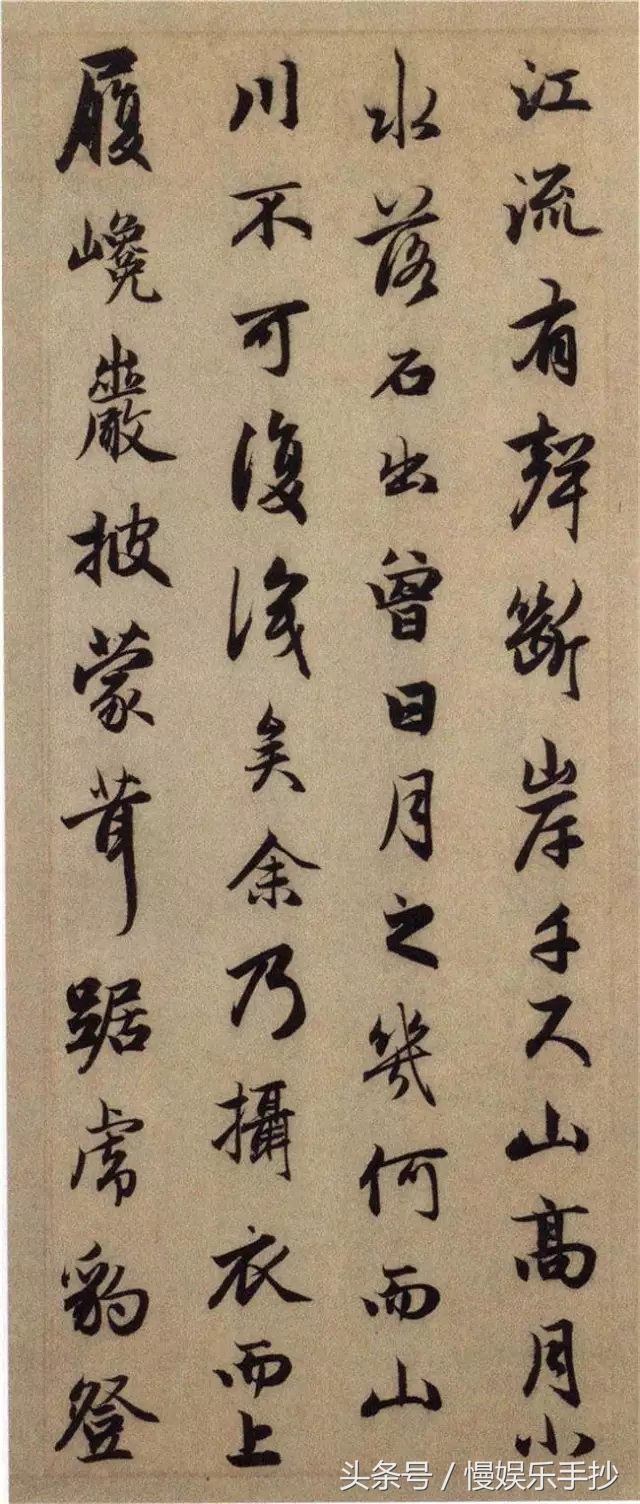 江流有聲斷岸千尺山高月小
水落石出曾日月之幾何而山
川不可復識矣余乃攝衣而上
履巉巖披蒙茸踞虎豹登
头条号 / 慢娱乐手抄